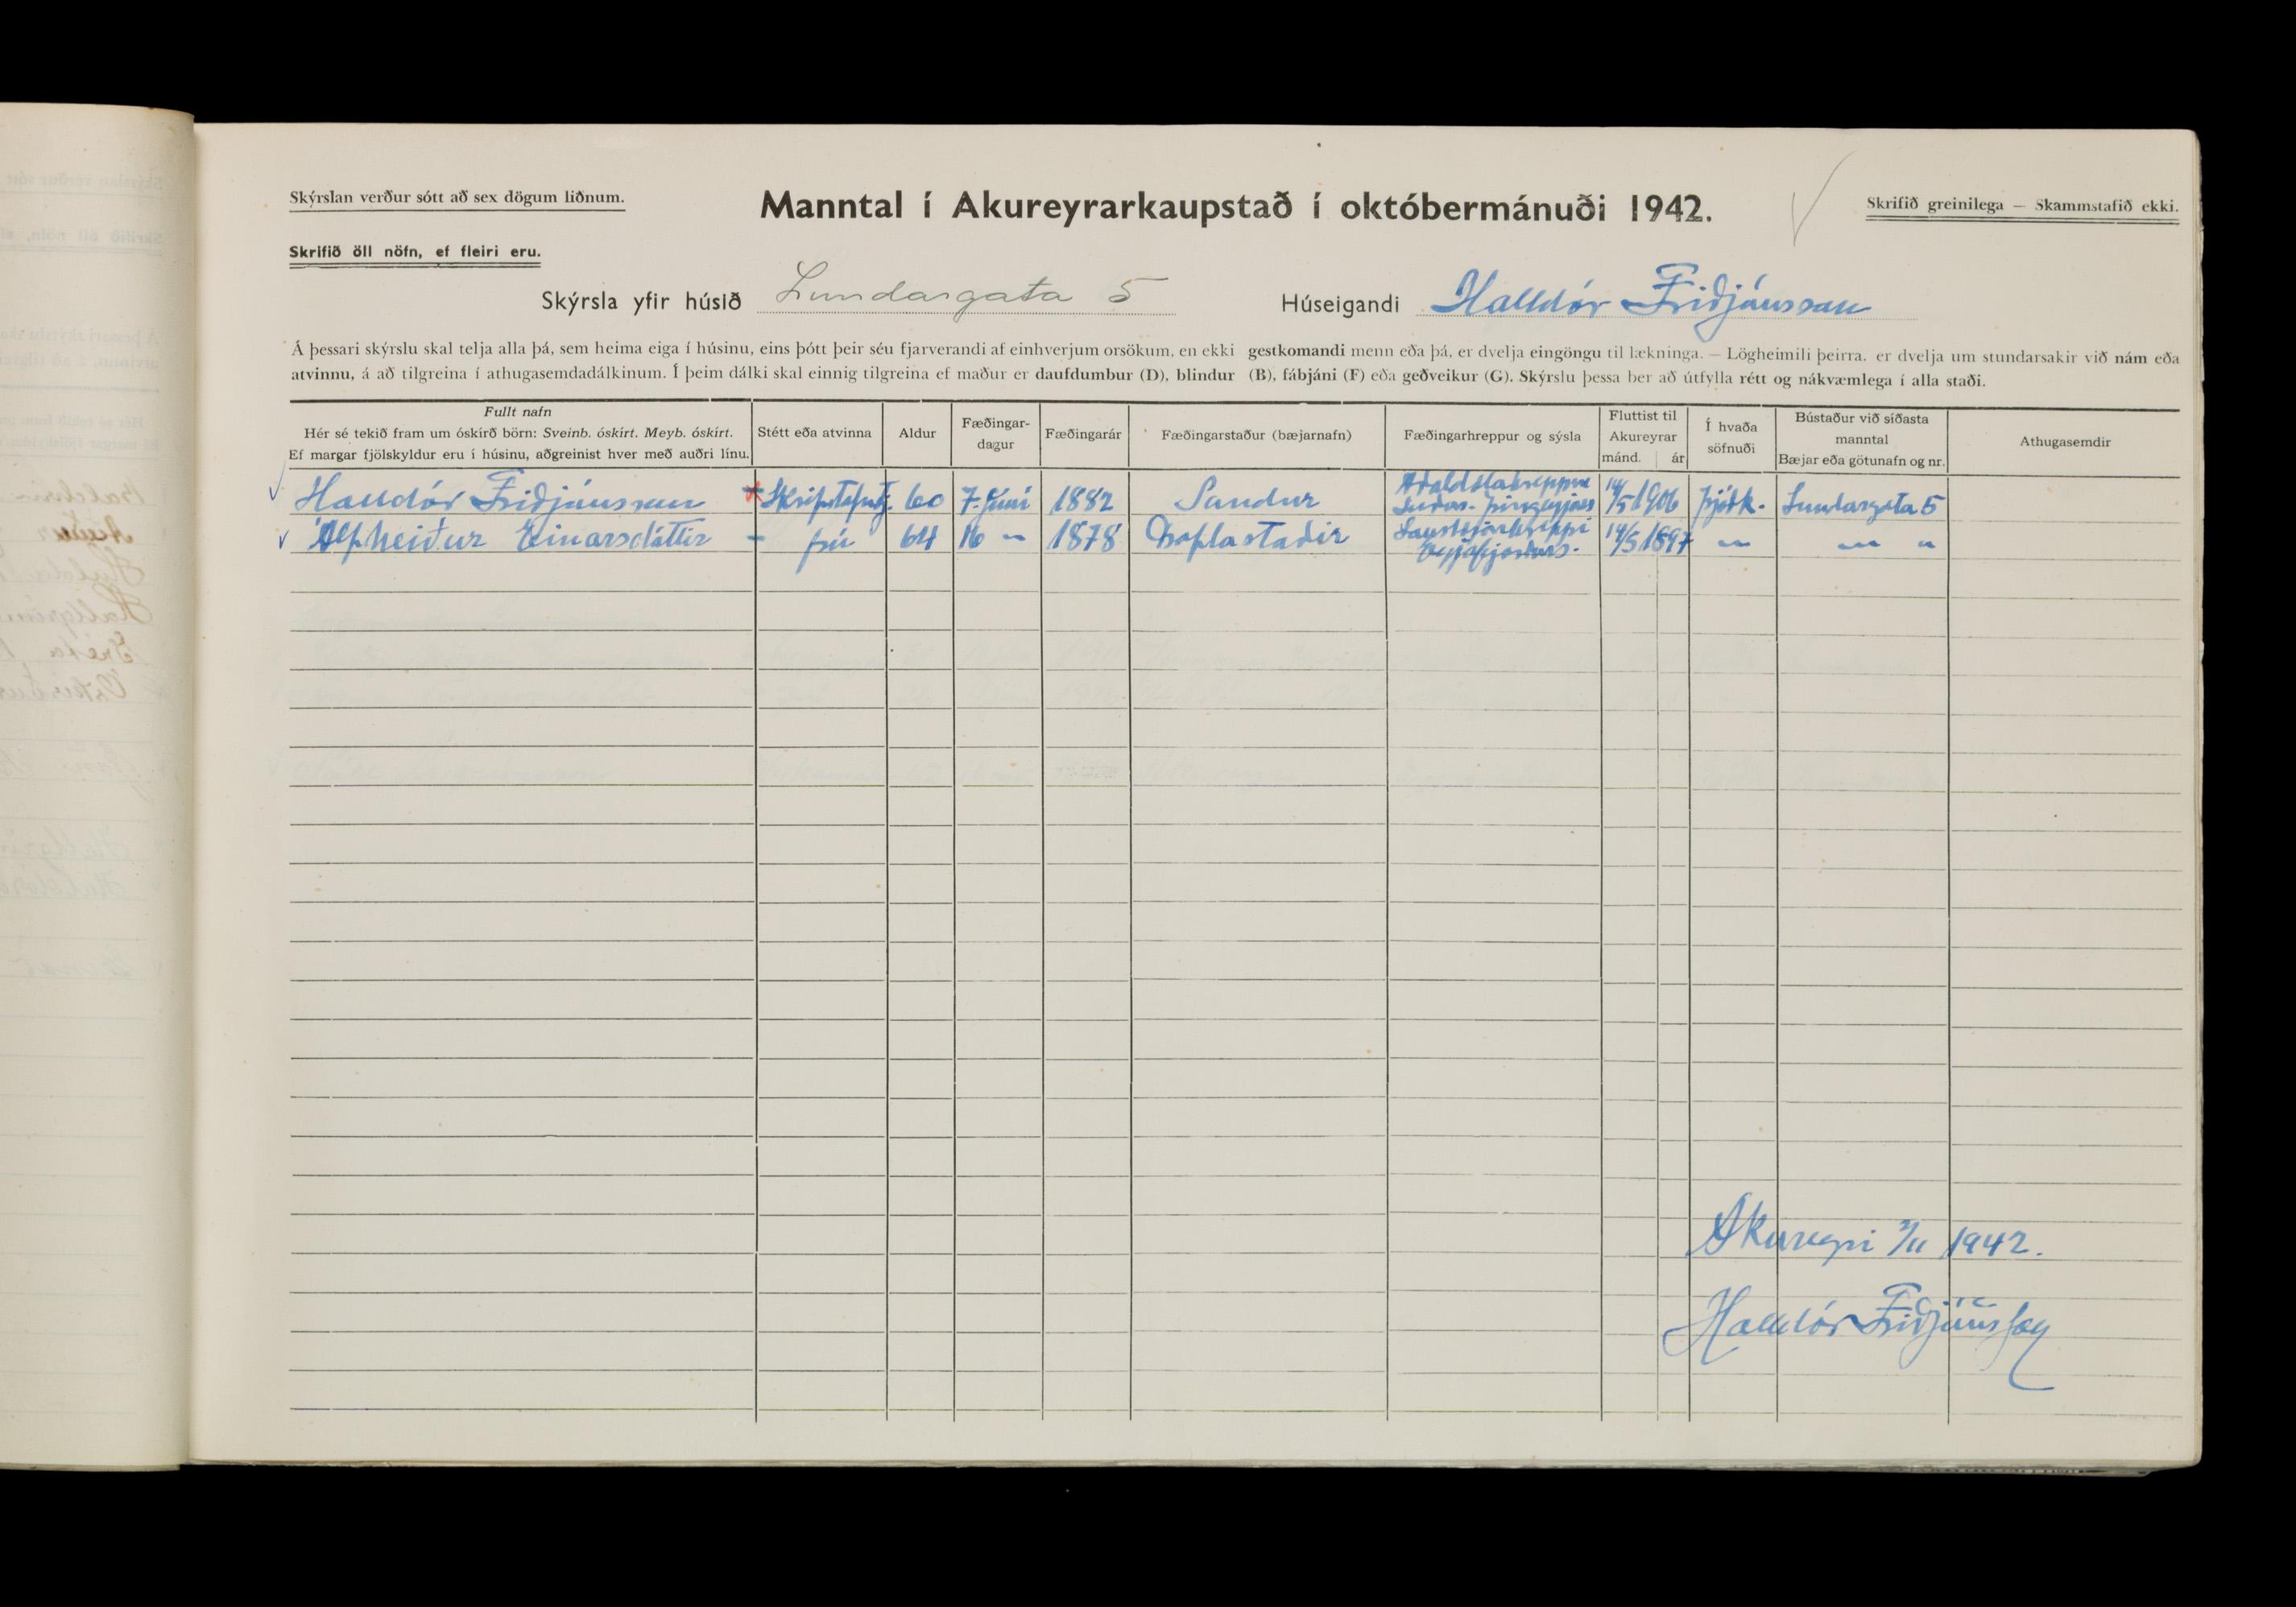 Skýrslan verður sótt að sex dögum liðnum.
Manntal í Akureyrarkaupstað í októbermánuði 1942.
Skrifið greinilega — Skammstafið ekki.
Skrifið öll nöfn, ef fleiri eru.
Skýrsla yfir húsið Lundargata 5 Húseigandi Halldór Friðjónsson
Á þessari skýrslu skal telja alla þá, sem heima eiga í húsinu, eins þótt þeir séu fjarverandi af einhverjum orsökum, en ekki gestkomandi menn eða þá, er dvelja eingöngu til lækninga. — Lögheimili þeirra, er dvelja um stundarsakir við nám eða
atvinnu, á að tilgreina í athugasemdadálkinum. Í þeim dálki skal einnig tilgreina ef maður er daufdumbur (D), blindur (B), fábjáni (F) eða geðveikur (G). Skýrslu þessa ber að útfylla rétt og nákvæmlega í alla staði.
Fullt nafn
Hér sé tekið fram um óskírð börn: Sveinb. óskírt. Meyb. óskírt.
Ef margar fjölskyldur eru í húsinu, aðgreinist hver með auðri línu.
Stétt eða atvinna
Aldur
Fæðingar-
dagur
Fæðingarár
Fæðingarstaður (bæjarnafn)
Fæðingarhreppur og sýsla
Fluttist til
Akureyrar
mánd. ár
Í hvaða
söfnuði
Bústaður við síðasta
manntal
Bæjar eða götunafn og nr.
Athugasemdir
Halldór Friðjónsson 60 7. júní 1882 Sandur 14/5 1906 þjóðk. Lundargata 5
Álfheiður Einarsdóttir frú 64 16 〃 1878 14/5 1897 〃 〃 〃
Akureyri 3/11 1942.
Halldór Friðjónsson